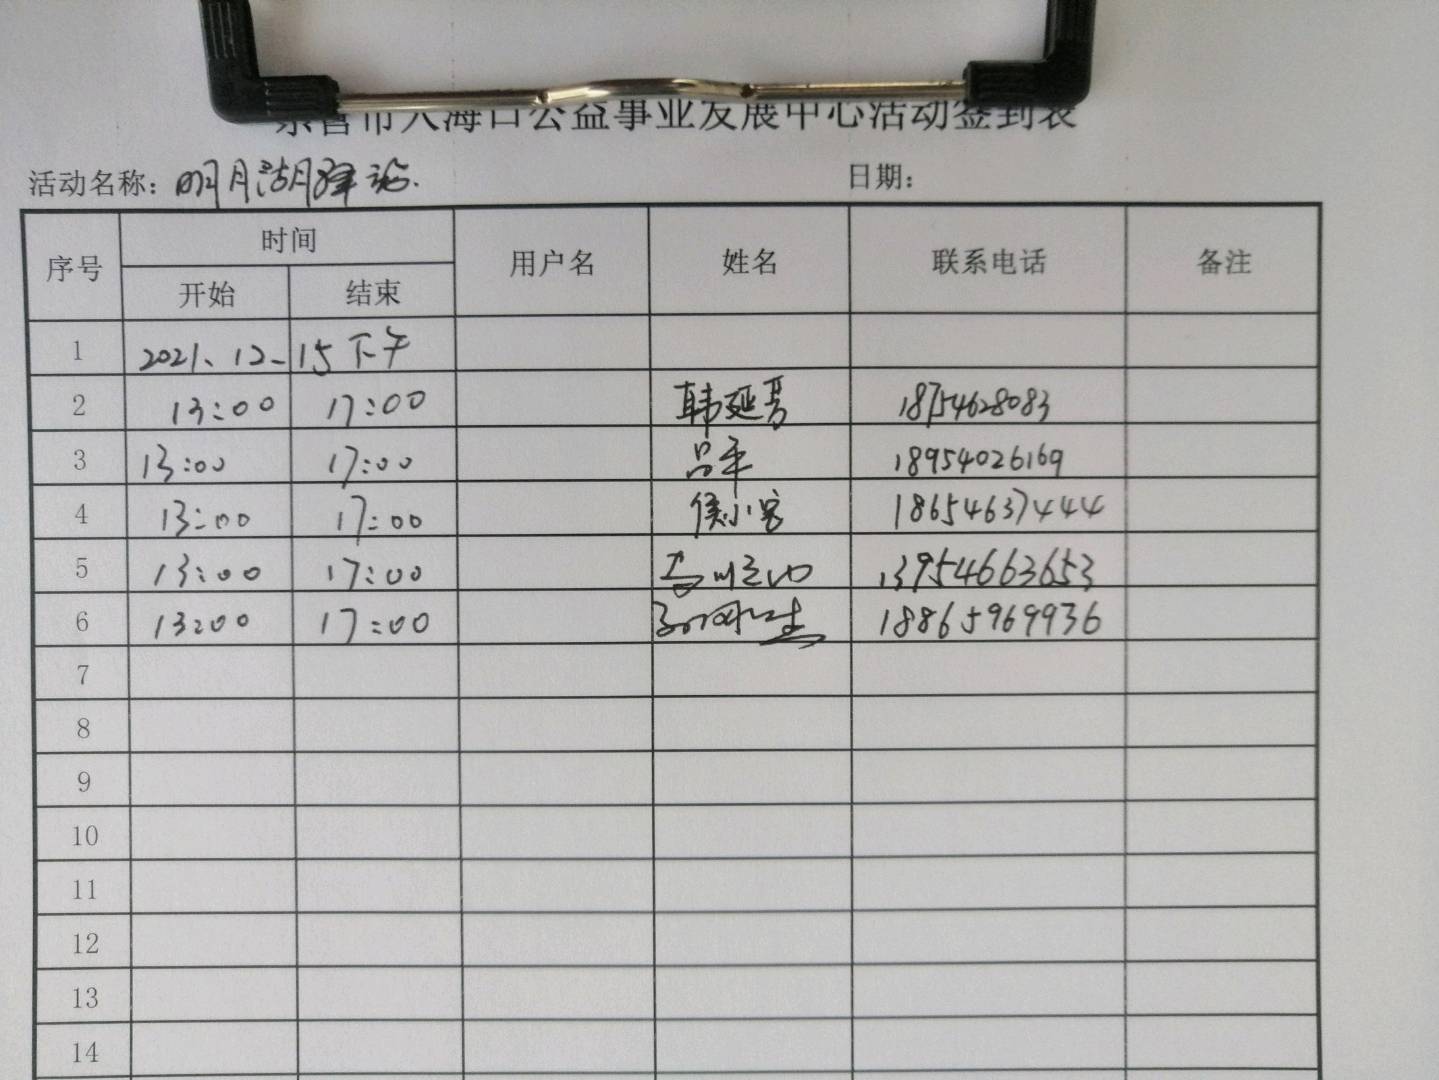 东营市入海口公益事业发展中心活动签到表
活动名称：明月湖驿站.
日期：
序号 时间 用户名 姓名 联系电话 备注
开始 结束
1 2021、12-15下午
2 13:00 17:00 韩延 18754628083
3 13:00 17:00 吕平 18954026169
4 13:00 17:00 侯小 18654637444
5 13:00 17:00 13954663653
6 13:00 17:00 18865969936
7
8
9
10
11
12
13
14